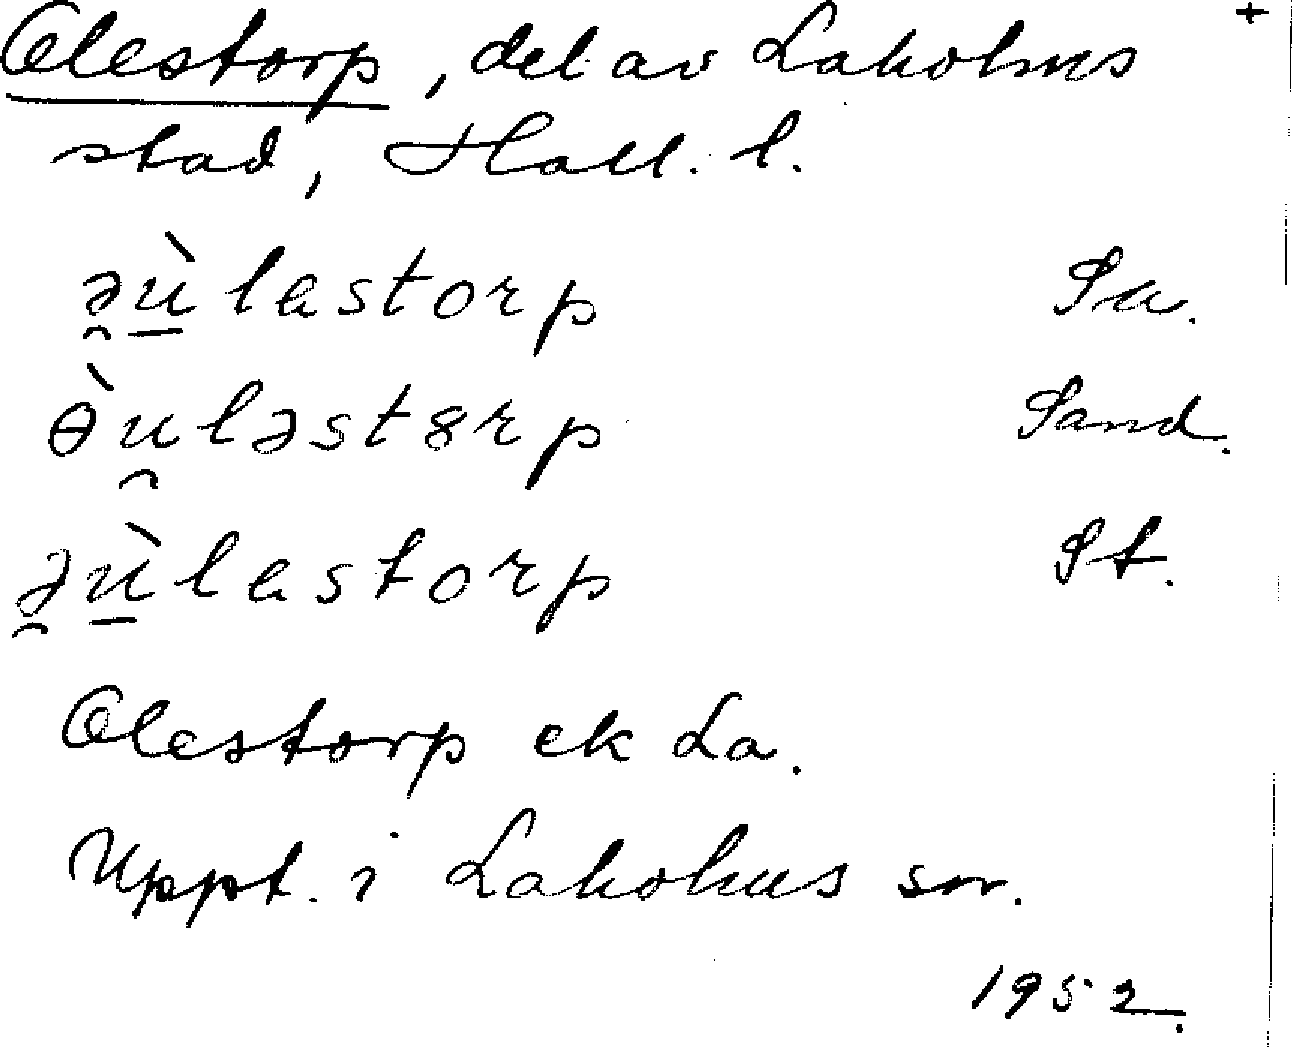 Olestorp, del av Laholms +
stad, Hall. l.
ə̯ù̱lastorp Sa.
ɵ̀u̯ləstȣrp Sand.
ə̯ù̱lastorp St.
Olestorp ek La.
Uppt. i Laholms sn.
1952.